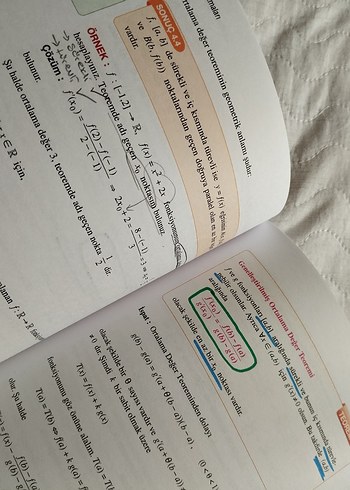 ortalama değer teoreminin geometrik anlamı şudur:
SONUÇ 4.4
f, [a, b] de sürekli ve iç kısmında türevli ise y = f(x) eğrisinin
ve B(b, f(b)) noktalarından geçen doğruya paralel olan
vardır.
ÖRNEK : f : [-1, 2] → R, f(x) = x² + 2x fonksiyonunun
hesaplayınız. Teoremde adı geçen x₀ noktasını bulunuz.
Çözüm :
f'(x₀) = f(2) - f(-1) / 2 - (-1) ⇒ 2x₀ + 2 = 8 - (-1) / 3 = 3
bulunur.
Şu halde ortalama değer 3, teoremde adı geçen nokta 1/2 dir.
∈ R için,
Genelleştirilmiş Ortalama Değer Teoremi
f ve g fonksiyonları [a,b] aralığında sürekli ve bunun iç kısmında türevle-
nebilir olsunlar. Ayrıca ∀x ∈ (a,b) için g'(x) ≠ 0 olsun. Bu takdirde (a,b)
aralığında
f'(x₀) / g'(x₀) = f(b) - f(a) / g(b) - g(a)
olacak şekilde en az bir x₀ noktası vardır.
İspat : Ortalama Değer Teoreminden dolayı
g(b) - g(a) = g'(a + θ(b - a))(b - a), (0 < θ < 1)
olacak şekilde bir θ sayısı vardır ve g'(a + θ(b - a))
≠ 0 dır. Şimdi k bir sabit olmak üzere
T(x) = f(x) + k g(x)
fonksiyonunu göz önüne alalım.
T(a) = T(b) ⇔ f(a) + k g(a) =
olur. Şu halde